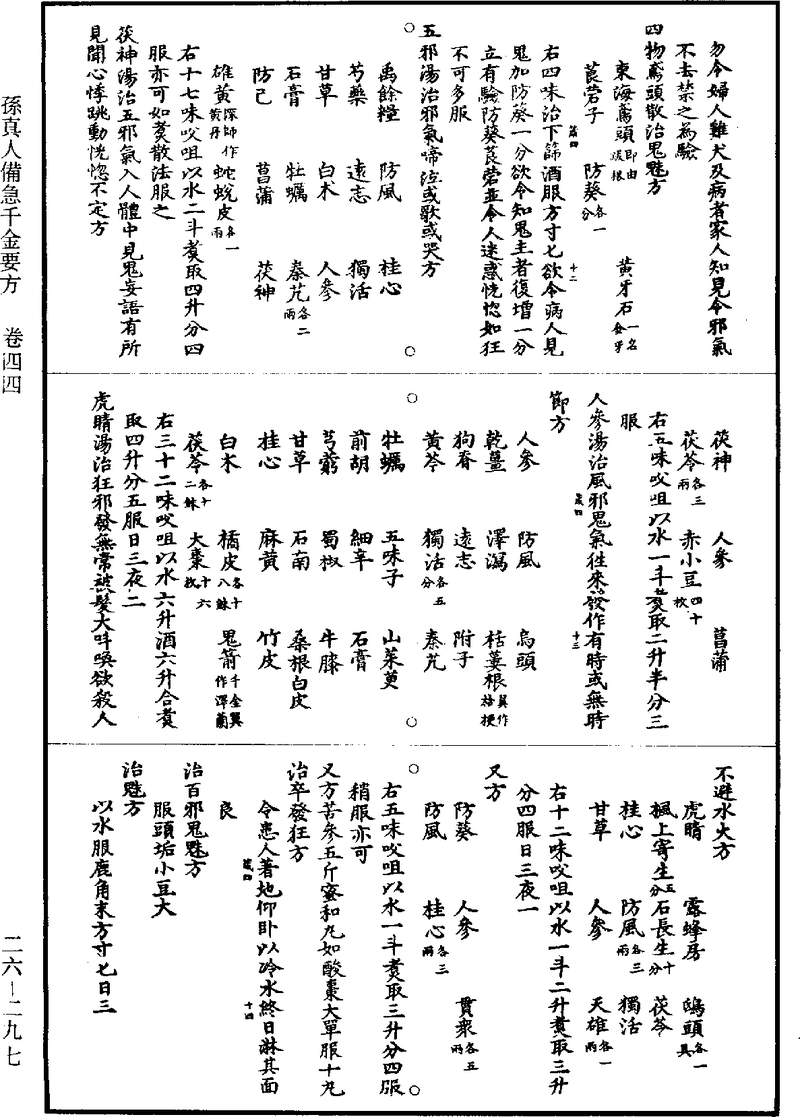 勿令婦人雞犬及病者家人知見令邪氣
不去禁之為驗
四物鳶頭散治鬼魅方
東海鳶頭即由跋根　黃牙石一名金牙
莨菪子　防葵各一分
右四味治下篩酒服方寸匕欲令病人見
鬼加防葵一分欲令知鬼主者復增一分
立有驗防葵莨菪並令人迷惑恍惚如狂
不可多服
五邪湯治邪氣啼泣或歌或哭方
禹餘糧　防風　桂心
芍藥　遠志　獨活
甘草　白朮　人參
石膏　牡蠣　秦艽各二兩
防己　菖蒲　茯神
雄黃深師作黃丹　蛇蛻皮各一兩
右十七味㕮咀以水二斗煑取四升分四
服亦可如煑散法服之
茯神湯治五邪氣入人體中見鬼妄語有所
見聞心悸跳動恍惚不定方
茯神　人參　菖蒲
茯苓各三兩　赤小豆四十枚
右五味㕮咀以水一斗煑取二升半分三
服
人參湯治風邪鬼氣往來發作有時或無時
節方
人參　防風　烏頭
乾薑　澤瀉　栝蔞根翼作桔梗
狗脊　遠志　附子
黃芩　獨活各五分　秦艽
牡蠣　五味子　山茱萸
前胡　細辛　石膏
芎藭　蜀椒　牛膝
甘草　石南　桑根白皮
桂心　麻黃　竹皮
白朮　橘皮各十八銖　鬼箭千金翼作澤蘭
茯苓各十二銖　大棗十六枚
右三十二味㕮咀以水六升酒六升合煑
取四升分五服日三夜二
虎睛湯治狂邪發無常被髮大叫喚欲殺人
不避水火方
虎睛　露蜂房　鴟頭各一具
楓上寄生五分　石長生十分　茯苓
桂心　防風各三兩　獨活
甘草　人參　天雄各一兩
右十二味㕮咀以水一斗二升煑取三升
分四服日三夜一
又方
防葵　人參　貫衆各五兩
防風　桂心各三兩
右五味㕮咀以水一斗煑取三升分四服
稍服亦可
又方苦參五斤蜜和丸如酸棗大單服十丸
治卒發狂方
令患人著地仰卧以冷水終日淋其面
良
治百邪鬼魅方
服頭垢小豆大
治魅方
以水服鹿角末方寸匕日三
孫真人備急千金要方　卷四四
二六—二九七